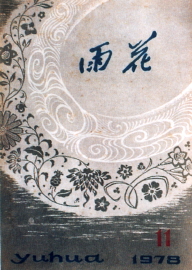 雨花
11
yuhua 1978